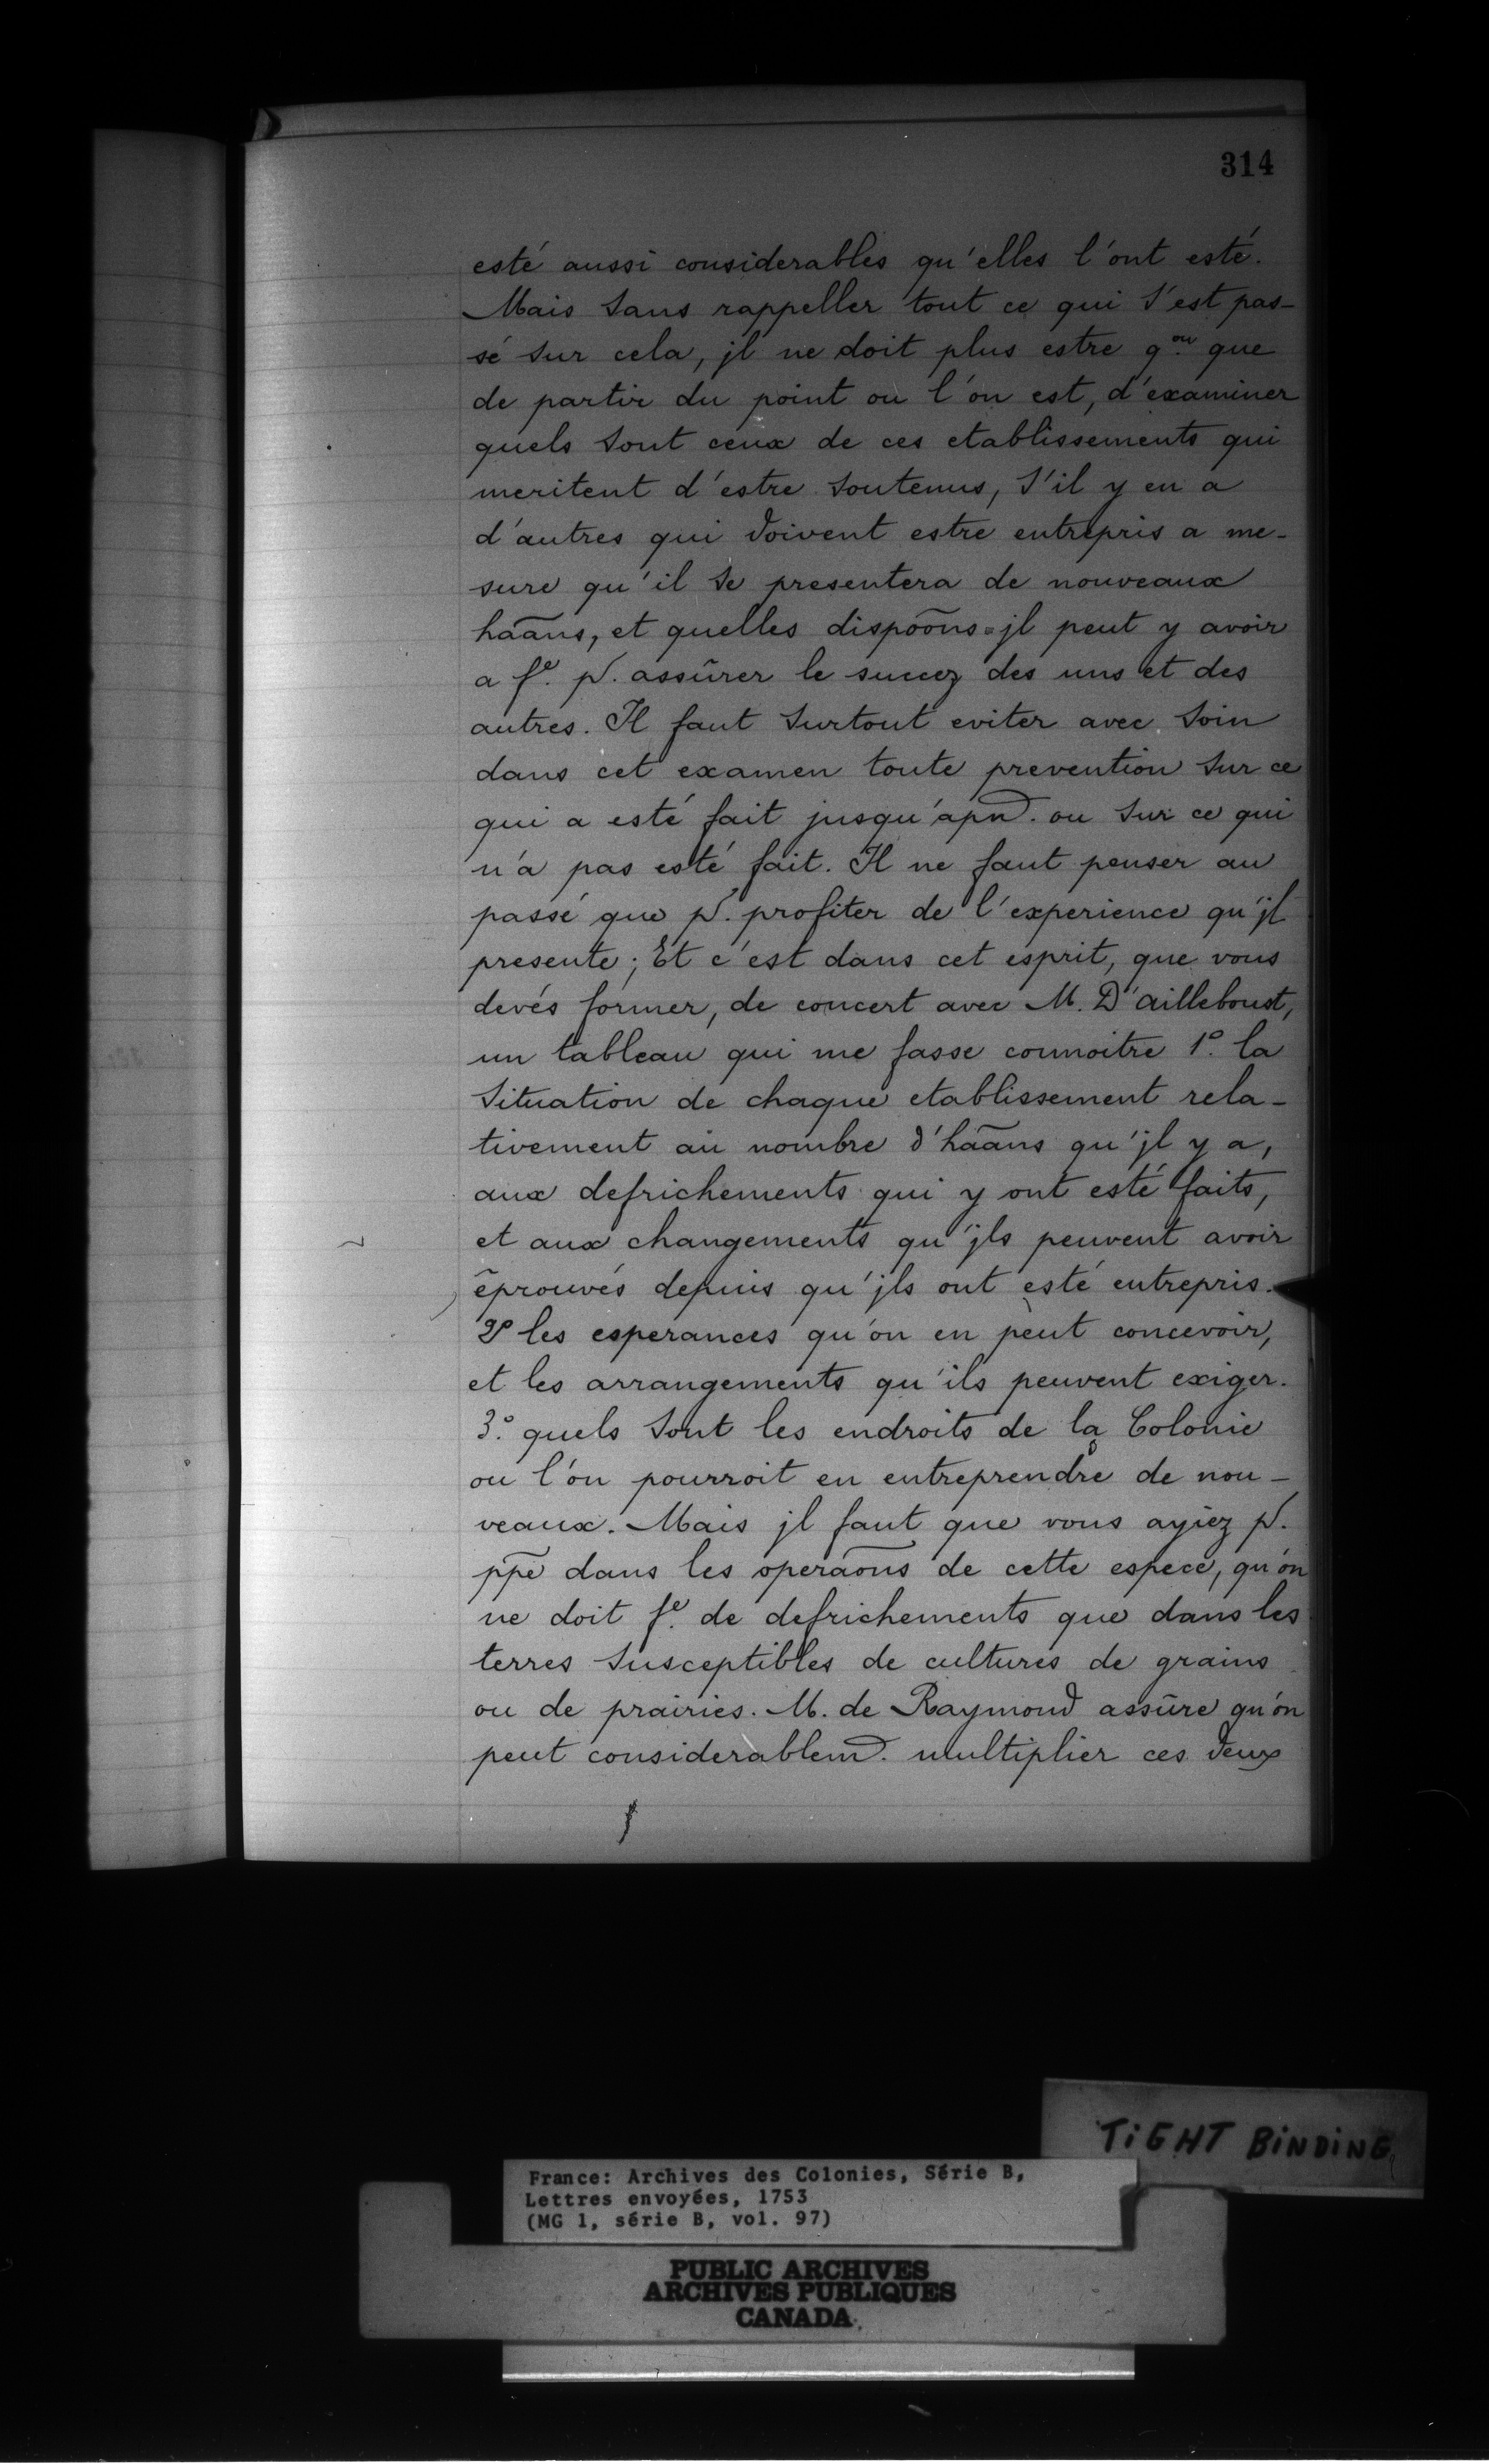 314
esté aussi considerables qu'elles l'ont esté.
Mais sans rappeller tout ce qui s'est pas-
sé sur cela, jl ne doit plus estre q.on que
de partir du point ou l'on est, d'examiner
quels sont ceux de ces etablissements qui
meritent d'estre soutenus, s'il y en a
d'autres qui doivent estre entrepris a me-
sure qu'il se presentera de nouveaux
hãans, et quelles dispõons jl peut y avoir
a f.e p.r assûrer le succez des uns et des
autres. Il faut surtout eviter avec soin
dans cet examen toute prevention sur ce
qui a esté fait jusqu'apnt. ou sur ce qui
n'a pas esté fait. Il ne faut penser au
passé que p.r profiter de l'experience qu'jl
presente; Et c'est dans cet esprit, que vous
devés former, de concert avec M. D'ailleboust,
un tableau qui me fasse connoitre 1.o la
situation de chaque etablissement rela-
tivement au nombre d'hãans qu'jl y a,
aux defrichements qui y ont esté faits,
et aux changements qu'jls peuvent avoir
éprouvés depuis qu'jls ont esté entrepris.
2.o les esperances qu'on en peut concevoir,
et les arrangements qu'ils peuvent exiger.
3.o quels sont les endroits de la Colonie
ou l'on pourroit en entreprendre de nou-
veaux. Mais jl faut que vous ayiez p.r
pp̃e dans les operãons de cette espece, qu'on
ne doit f.e de defrichements que dans les
terres susceptibles de cultures de grains
ou de prairies. M. de Raymond assûre qu'on
peut considerablemt. multiplier ces deux
TIGHT BINDING
France: Archives des Colonies, Série B,
Lettres envoyées, 1753
(MG 1, série B, vol. 97)
PUBLIC ARCHIVES
ARCHIVES PUBLIQUES
CANADA